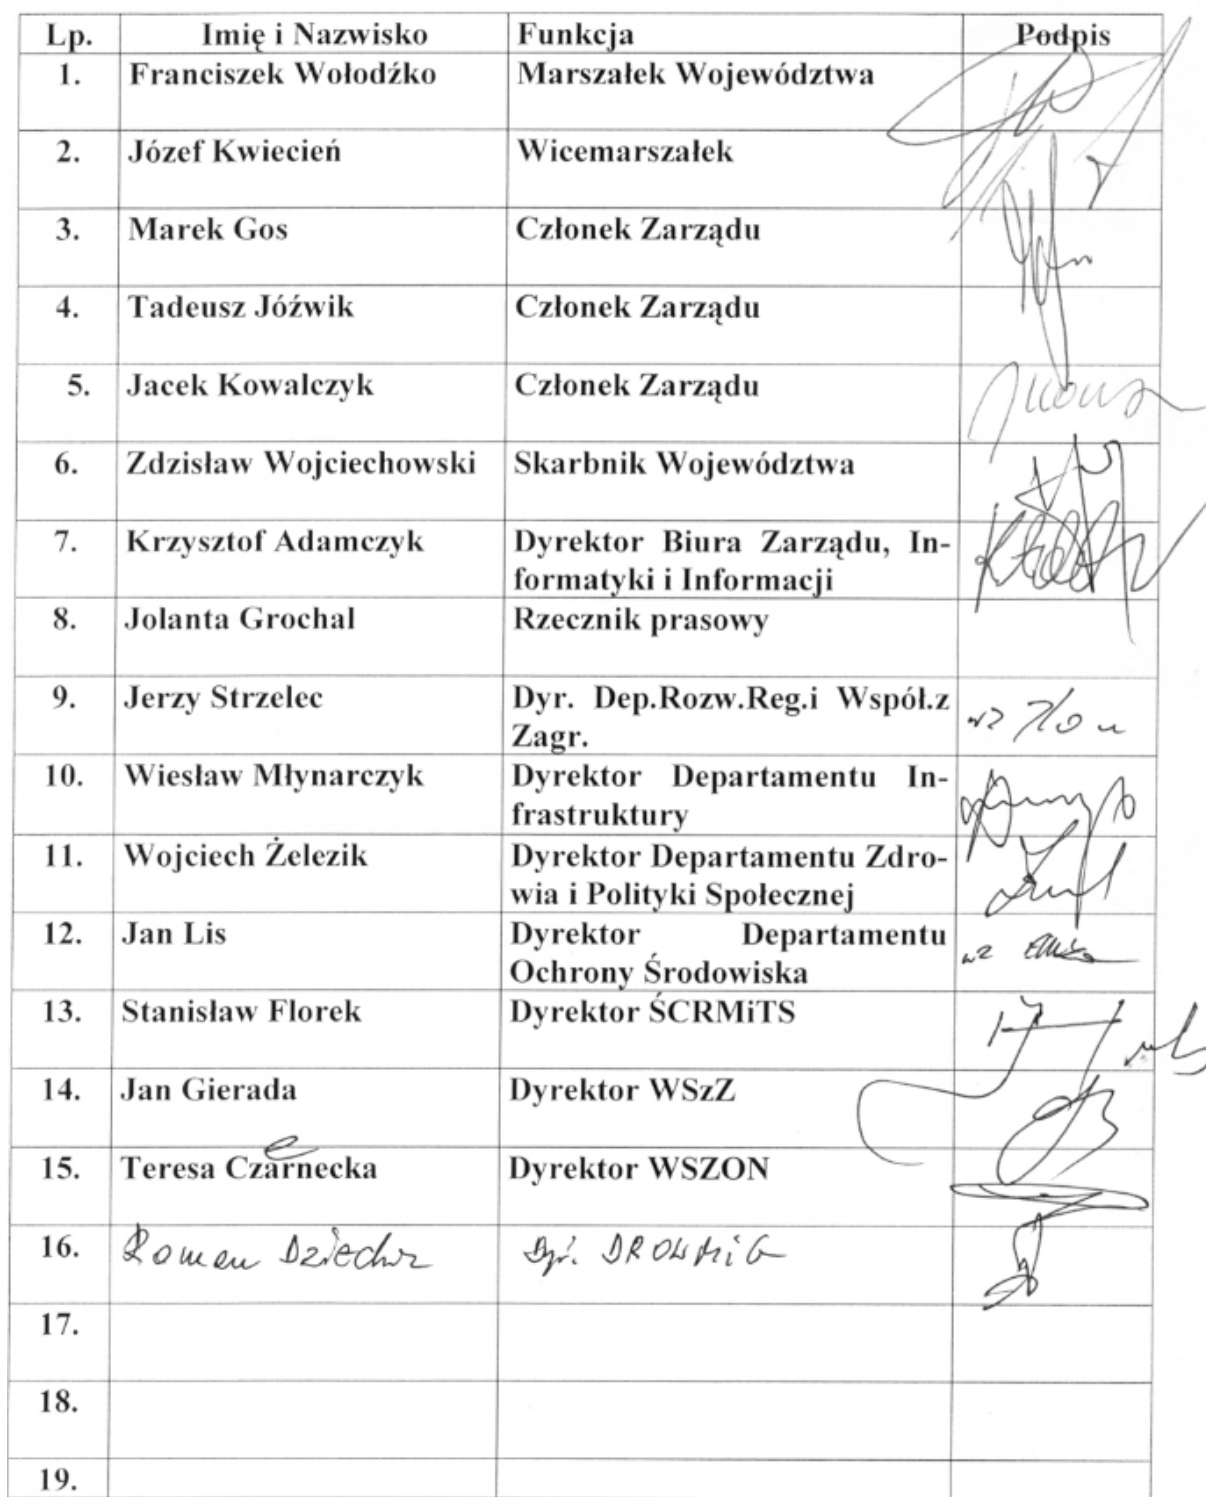 Lp. Imię i Nazwisko Funkcja Podpis
1. Franciszek Wołodźko Marszałek Województwa
2. Józef Kwiecień Wicemarszałek
3. Marek Gos Członek Zarządu
4. Tadeusz Jóźwik Członek Zarządu
5. Jacek Kowalczyk Członek Zarządu
6. Zdzisław Wojciechowski Skarbnik Województwa
7. Krzysztof Adamczyk Dyrektor Biura Zarządu, In-
formatyki i Informacji
8. Jolanta Grochal Rzecznik prasowy
9. Jerzy Strzelec Dyr. Dep.Rozw.Reg.i Współ.z
Zagr. wz
10. Wiesław Młynarczyk Dyrektor Departamentu In-
frastruktury
11. Wojciech Żelezik Dyrektor Departamentu Zdro-
wia i Polityki Społecznej
12. Jan Lis Dyrektor Departamentu
Ochrony Środowiska wz
13. Stanisław Florek Dyrektor ŚCRMiTS
14. Jan Gierada Dyrektor WSzZ
15. Teresa Czarnecka Dyrektor WSZON
16. Roman Dyr.
17.
18.
19.